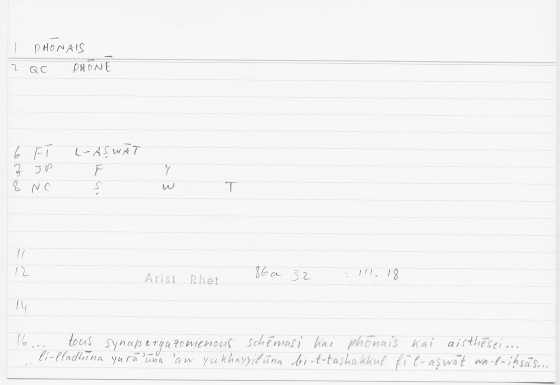 1 PHŌNAIS
2 QC PHŌNĒ
6 FĪ L-AṢWĀT
7 JP F Y
8 NC Ṣ W T
11
12 Arist Rhet 86a 32 = 111.18
14
16 ... tous synapergazomenous schēmasi kai phōnais kai aisthēsei ...
li-lladhīna yarā'ūna 'aw yukhayyilūna bi-t-tashakkul fī l-aṣwāt wa-l-iḥsās ...